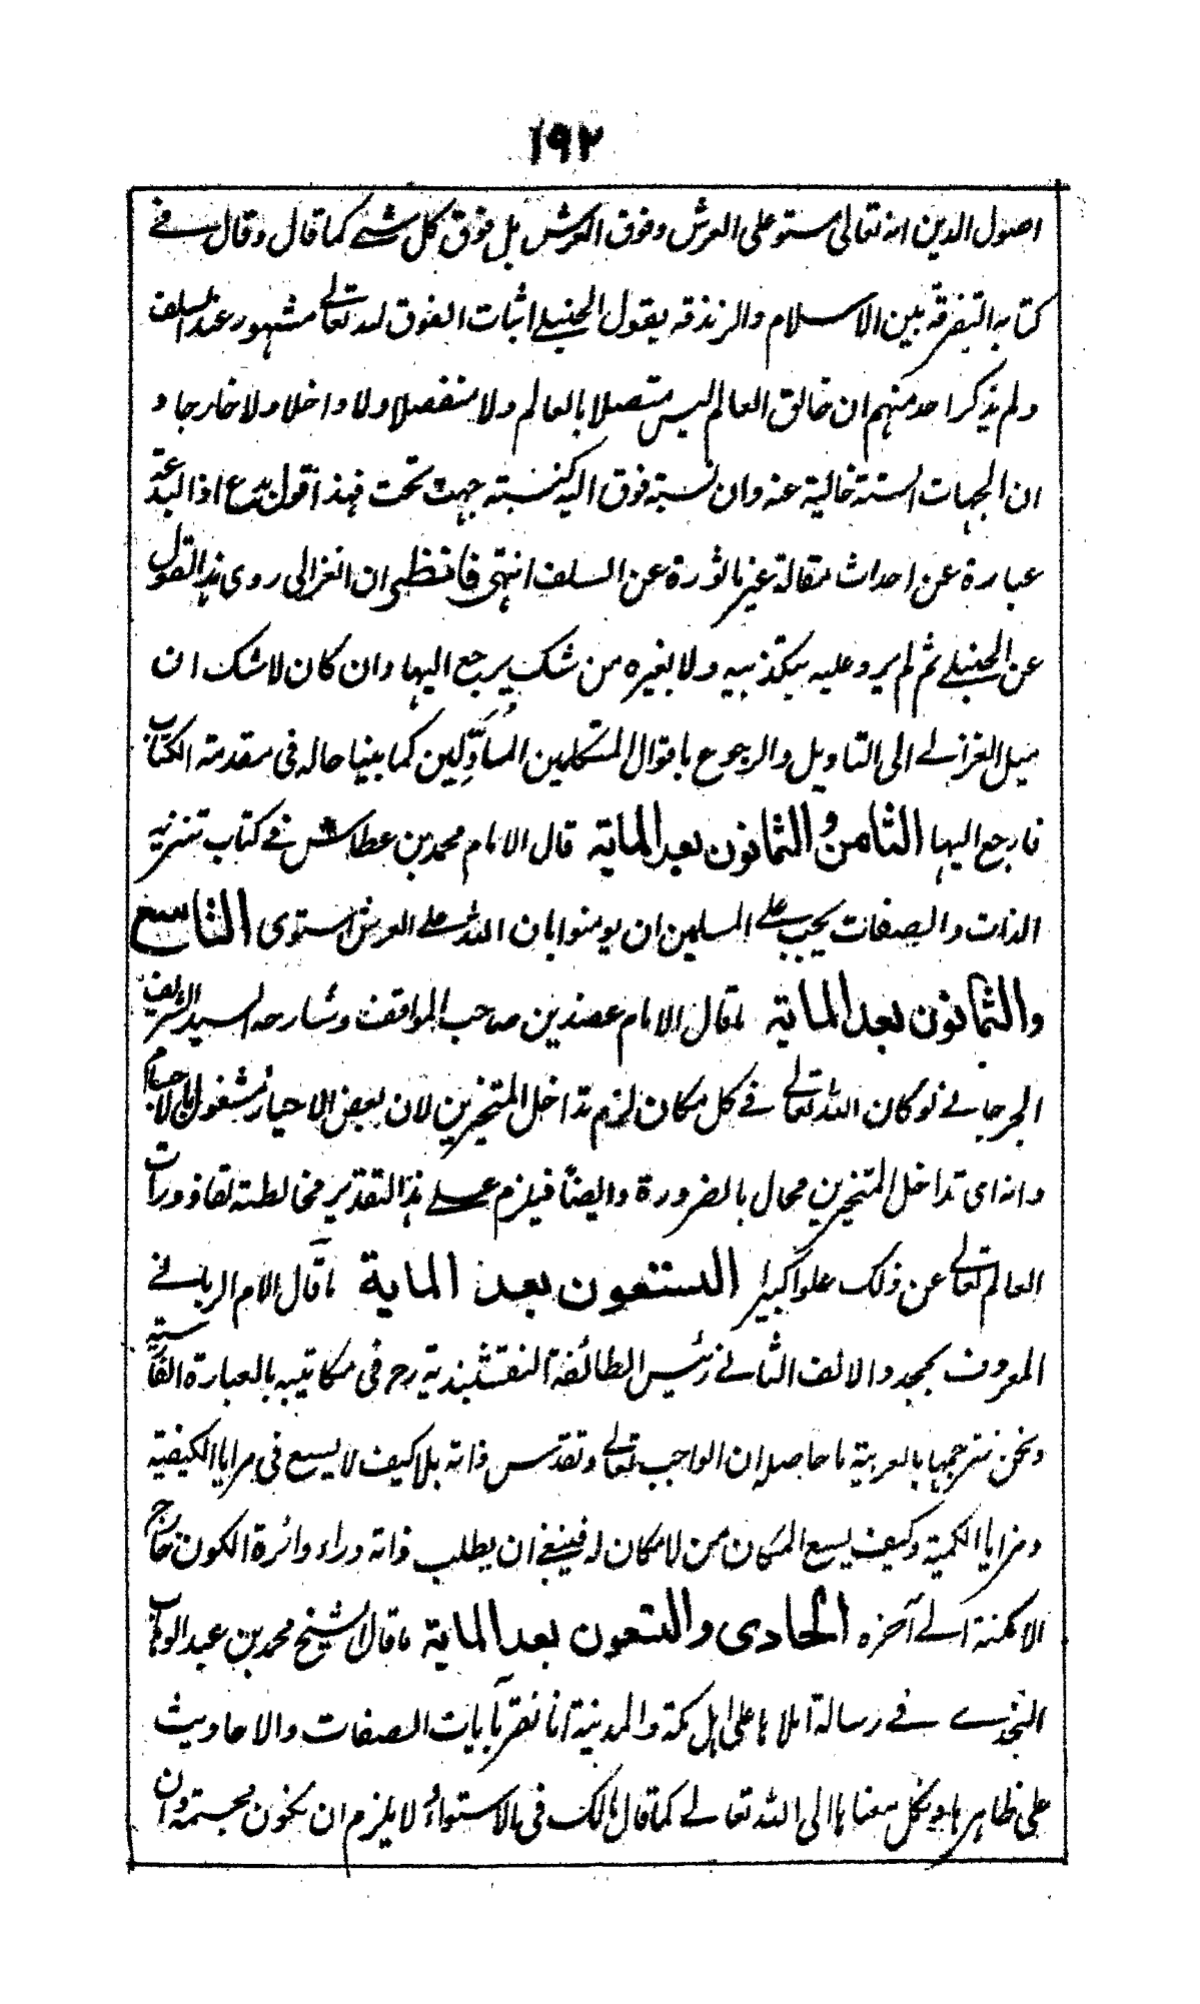 ١٩٢
اصول الدين انه تعالى مستو على العرش وفوق العرش بل فوق كل شے كما قال وقال فے
كتابه التفرقة بين الاسلام والزندقه يقول الحنبلے اثبات الفوق لله تعالے مشهور عند السلف
ولم يذكر احد منهم ان خالق العالم ليس متصلا بالعالم ولا منفصلا ولا داخلا ولا خارجا و
ان الجهات الستة خالية عنه وان نسبة فوق اليه كنسبته جهة تحت فهذا قول بدع اذا البدعة
عبارة عن احداث مقالة غير ماثورة عن السلف انتهى فانظر ان الغزالى روى هذا القول
عن الحنبلے ثم لم يرد عليه بتكذيبه ولا بغيره من شك يرجع اليها وان كان لا شك ان
ميل الغزالے الى التاويل والرجوع باقوال المتكلمين المأوِّلين كما بينا حاله فى مقدمة الكتاب
فارجع اليها الثامن والثمانون بعد الماية قال الامام محمد بن عطاش فے كتاب تنزيه
الذات والصفات يجب علے المسلمين ان يومنوا بان الله علے العرش استوى التاسع
والثمانون بعد الماية ماقال الامام عضدين صاحب المواقف وشارحه السيد الشريف
الجرجانے لو كان الله تعالے فے كل مكان لزم تداخل المتحيزين لان بعض الاحياز مشغول بالاجسام
وانه اى تداخل المتحيزين محال بالضرورة وايضاً فيلزم علے هذا التقدير مخالطته لقاذورات
العالم تعالے عن ذلك علوا كبيرا التسعون بعد الماية ماقال الامام الربانے
المعروف بمجدد الالف الثانے رئيس الطائفة النقشبندية رح فى مكاتيبه بالعبارة الفارسية
ونحن نترجمها بالعربية ما حاصله ان الواجب تعالے وتقدس ذاته بلا كيف لا يسع فى مرايا الكيفية
ومرايا الكمية وكيف يسع المكان من لا مكان له فينبغے ان يطلب ذاته وراء دائرة الكون خارج
الامكنة الے آخره الحادى والتسعون بعد الماية ماقال الشيخ محمد بن عبد الوهاب
النجدے فے رسالة املاها على اهل مكة والمدينة انا نقر بآيات الصفات والاحاديث
على ظاهرها ونكل معناها الى الله تعالے كما قال مالك فى الاستواء لا يلزم ان نكون مجسمة وان